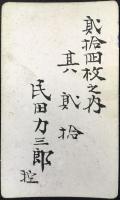 貮拾四枚之内
其貮拾
民田力三郎
控